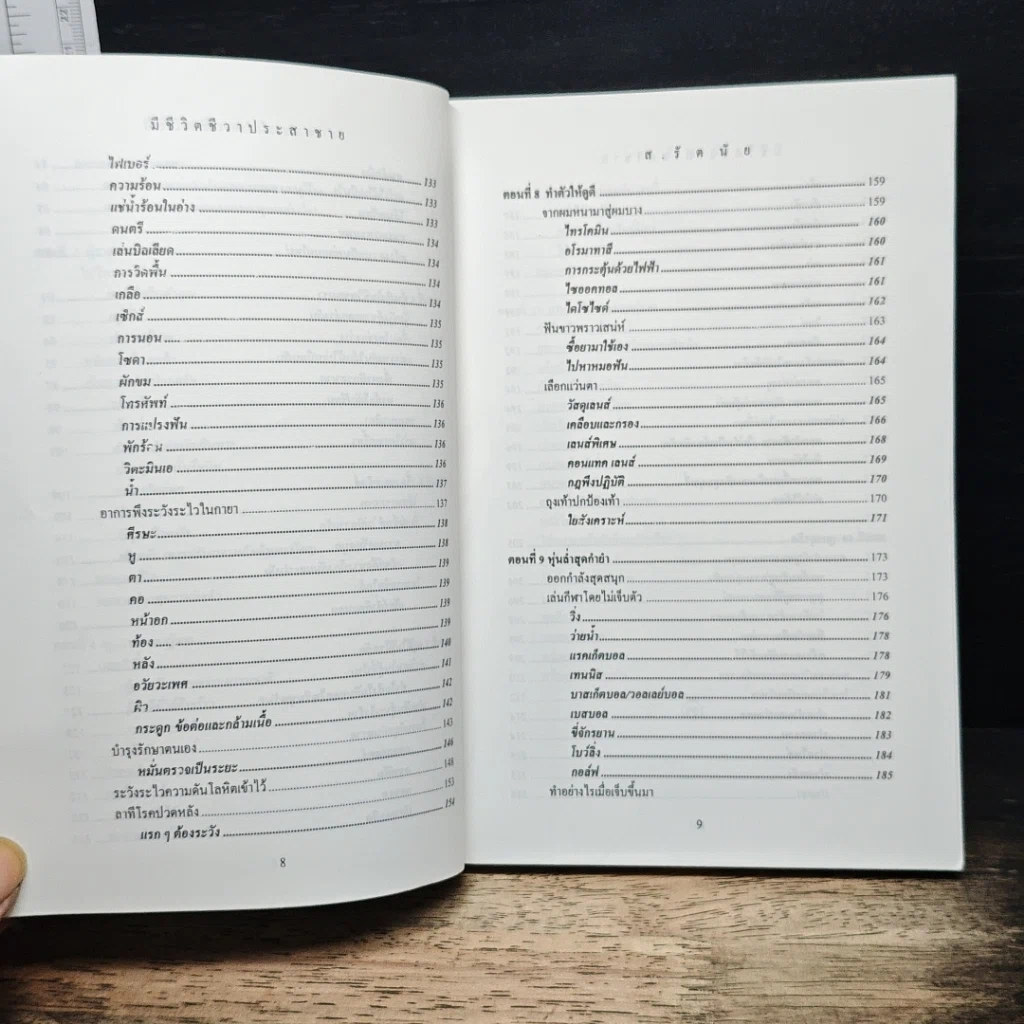 มีชีวิตชีวาประสาชาย
ไฟเบอร์ 133
ความร้อน 133
แช่น้ำร้อนในอ่าง 133
ดนตรี 134
เล่นบิลเลียด 134
การวิดพื้น 134
เกลือ 134
เซ็กส์ 135
การนอน 135
โซดา 135
ผักขม 135
โทรศัพท์ 136
การแปรงฟัน 136
พักร้อน 136
วิตะมินเอ 136
น้ำ 137
อาการพึงระวังระไวในกายา 137
ศีรษะ 138
หู 138
ตา 139
คอ 139
หน้าอก 139
ท้อง 139
หลัง 140
อวัยวะเพศ 141
ผิว 142
กระดูก ข้อต่อและกล้ามเนื้อ 142
บำรุงรักษาตนเอง 143
หมั่นตรวจเป็นระยะ 146
ระวังระไวความดันโลหิตเข้าไว้ 148
ลาทีโรคปวดหลัง 153
แรก ๆ ต้องระวัง 154
8
ส. รัตนัย
ตอนที่ 8 ทำตัวให้ดูดี 159
จากผมหนามาสู่ผมบาง 159
ไทรโคมิน 160
อโรมาทาสี 160
การกระตุ้นด้วยไฟฟ้า 161
ไซออคทอล 161
ไดโซไซด์ 162
ฟันขาวพราวเสน่ห์ 163
ซื้อยามาใช้เอง 164
ไปหาหมอฟัน 164
เลือกแว่นตา 165
วัสดุเลนส์ 165
เคลือบและกรอง 166
เลนส์พิเศษ 168
คอนแทค เลนส์ 169
กฎพึงปฏิบัติ 170
ถุงเท้าปกป้องเท้า 170
ใยสังเคราะห์ 171
ตอนที่ 9 หุ่นล่ำสุดกำยำ 173
ออกกำลังสุดสนุก 173
เล่นกีฬาโดยไม่เจ็บตัว 176
วิ่ง 176
ว่ายน้ำ 178
แรคเก็ตบอล 178
เทนนิส 179
บาสเก็ตบอล/วอลเลย์บอล 181
เบสบอล 182
ขี่จักรยาน 183
โบว์ลิ่ง 184
กอล์ฟ 185
ทำอย่างไรเมื่อเจ็บขึ้นมา
9